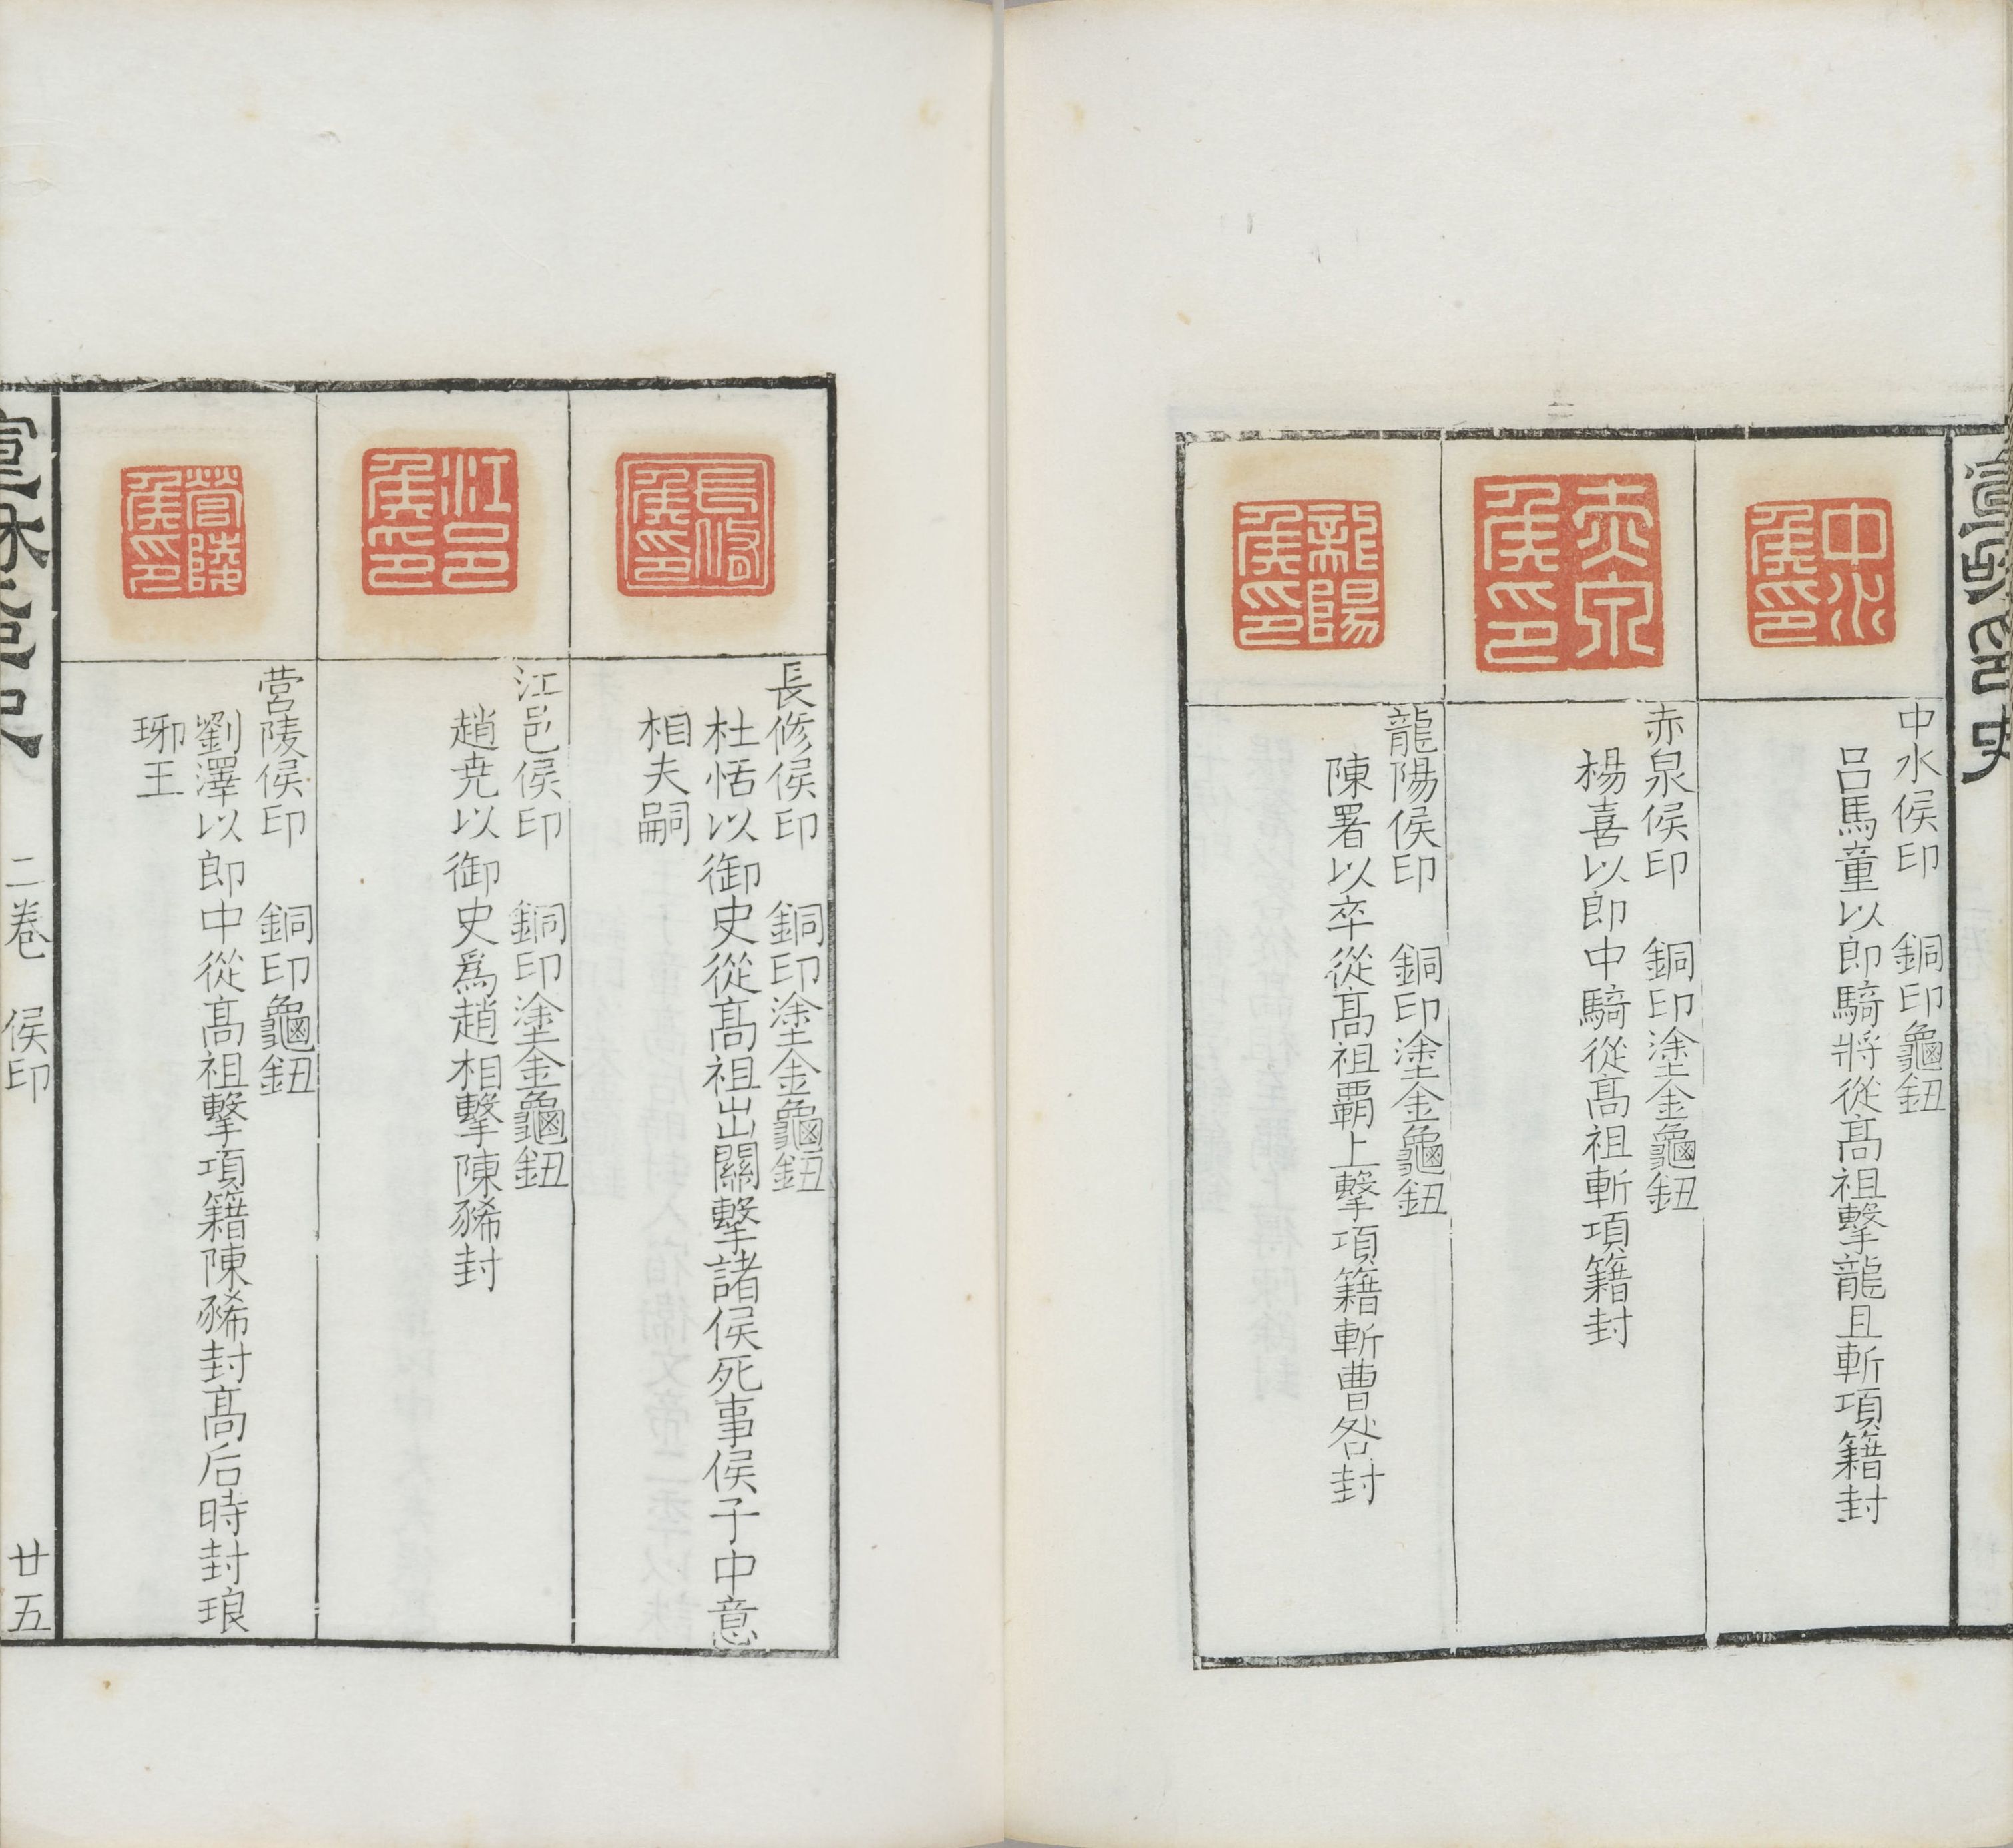 中水
侯印
中水侯印　銅印龜鈕
呂馬童以郎騎將從髙祖擊龍且斬項籍封
赤泉
侯印
赤泉侯印　銅印塗金龜鈕
楊喜以郎中騎從髙祖斬項籍封
龍陽
侯印
龍陽侯印　銅印塗金龜鈕
陳署以卒從髙祖覇上擊項籍斬曹咎封
長脩
侯印
長修侯印　銅印塗金龜鈕
杜恬以御史從髙祖出關擊諸侯死事侯子中意
相夫嗣
江邑
侯印
江邑侯印　銅印塗金龜鈕
趙尭以御史爲趙相擊陳豨封
營陵
侯印
营陵侯印　銅印龜鈕
劉澤以郎中從髙祖擊項籍陳豨封髙后時封琅
琊王
二卷　侯印
廿五